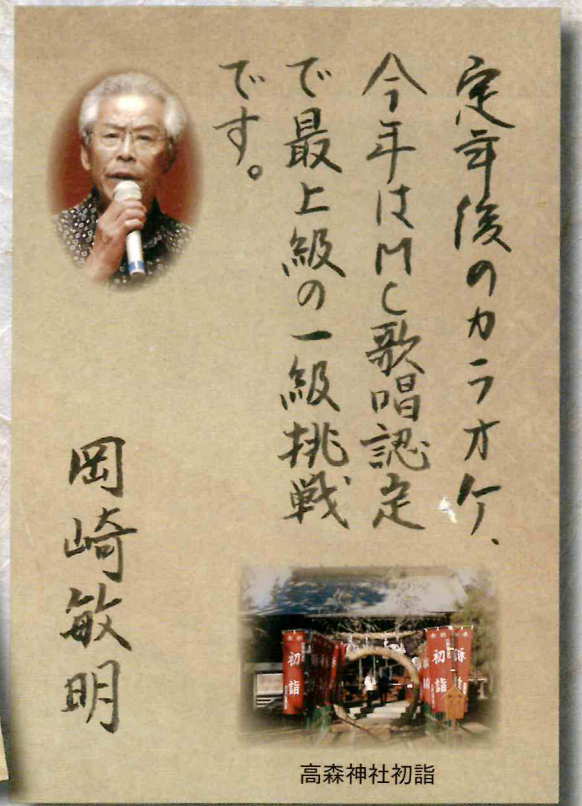 定年後のカラオケ、
今年はMC歌唱認定
で最上級の一級挑戦
です。
岡崎敏明
初詣
初詣
高森神社初詣